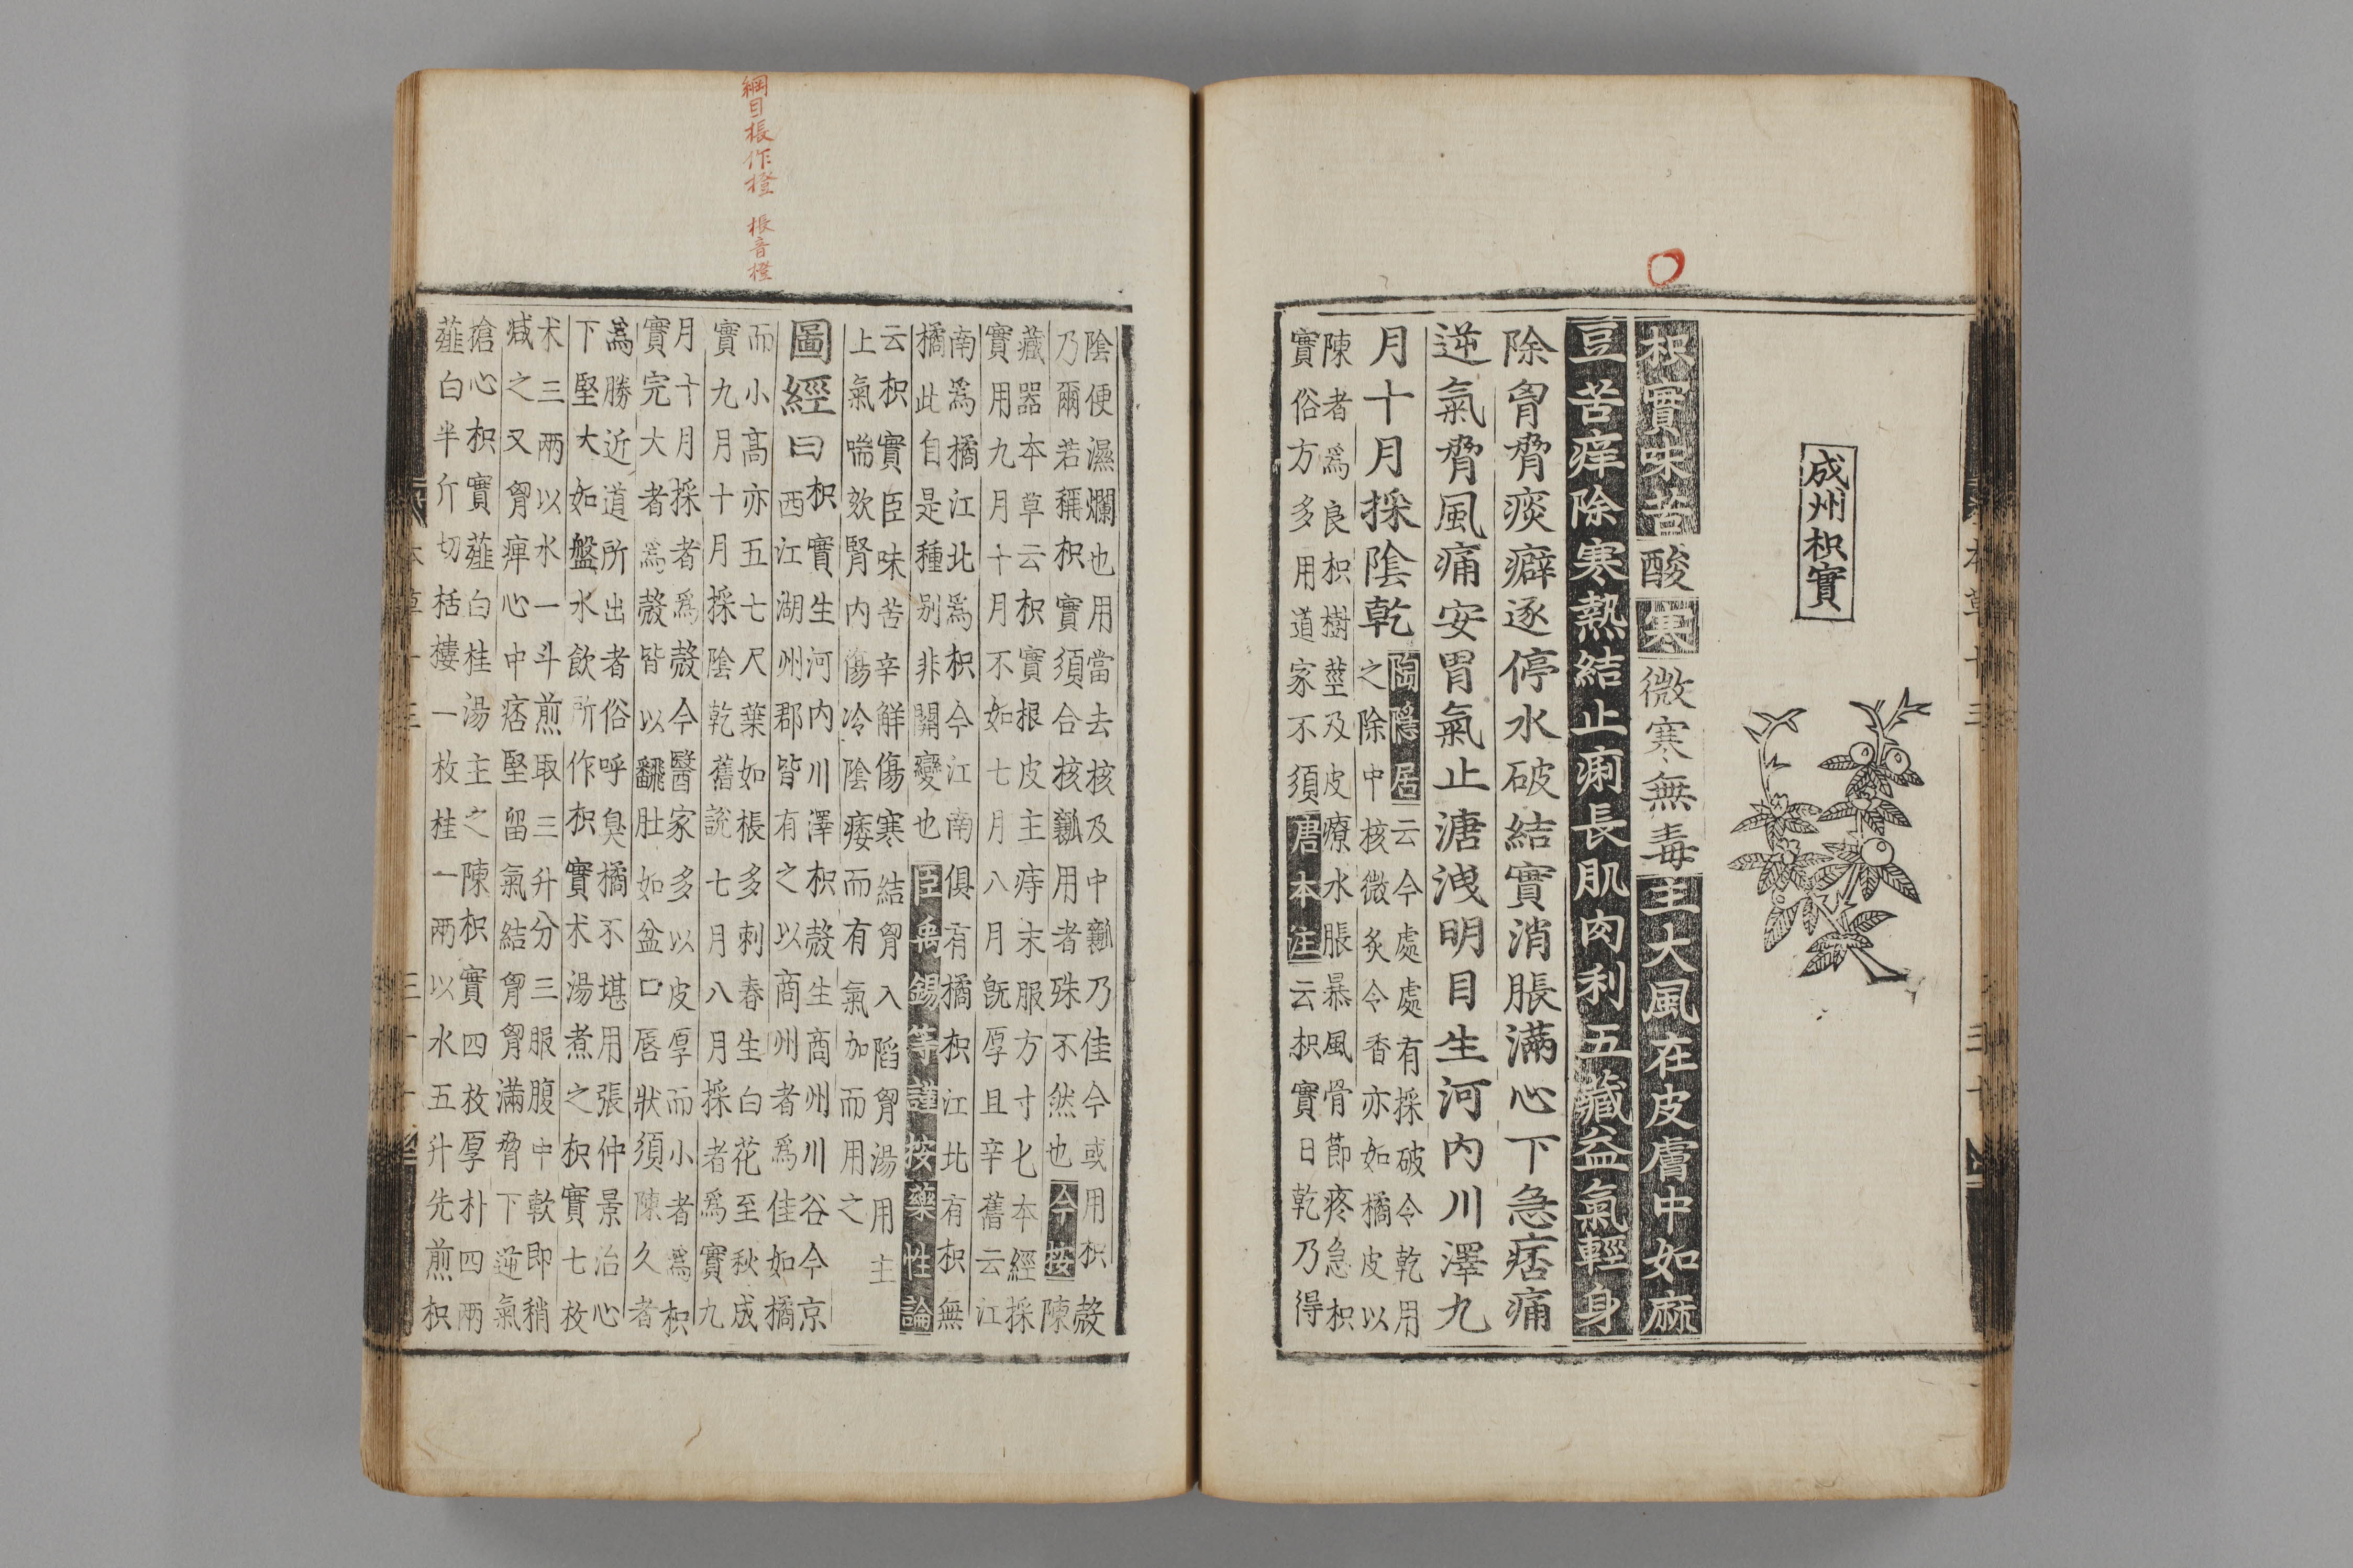 成州枳實
枳實味苦酸寒微寒無毒主大風在皮膚中如麻
豆苦痒除寒熱結止痢長肌肉利五藏益氣輕身
除胷脅痰癖逐停水破結實消脹滿心下急痞痛
逆氣脅風痛安胃氣止溏洩明目生河内川澤九
月十月採陰乾
陶隱居云今處處有採破令乾用
之除中核微炙令香亦如橘皮以
陳者爲良枳樹莖及皮療水脹暴風骨節疼急枳
實俗方多用道家不須唐本注云枳實日乾乃得
陰便濕爛也用當去核及中瓤乃佳今或用枳殻
乃爾若稱枳實須合核瓤用者殊不然也今按陳
藏器本草云枳實根皮主痔末服方寸匕本經採
實用九月十月不如七月八月旣厚且辛舊云江
南爲橘江北爲枳今江南俱有橘枳江北有枳無
橘此自是種别非關變也臣禹錫等謹按藥性論
云枳實臣味苦辛解傷寒結胷入陷胷湯用主
上氣喘欬腎内傷冷陰痿而有氣加而用之
圖經曰
枳實生河内川澤枳殻生商州川谷今京
西江湖州郡皆有之以商州者爲佳如橘
而小高亦五七尺葉如棖多刺春生白花至秋成
實九月十月採陰乾舊說七月八月採者爲實九
月十月採者爲殻今醫家多以皮厚而小者爲枳
實完大者爲殻皆以翻肚如盆口唇狀須陳久者
爲勝近道所出者俗呼臭橘不堪用張仲景治心
下堅大如盤水飲所作枳實术湯煮之枳實七枚
术三兩以水一斗煎取三升分三服腹中軟即稍
㓕之又胷痺心中痞堅留氣結胷胷滿脅下逆氣
搶心枳實薤白桂湯主之陳枳實四枚厚朴四兩
薤白半斤切栝樓一枚桂一兩以水五升先煎枳
綱目棖作橙　棖音橙